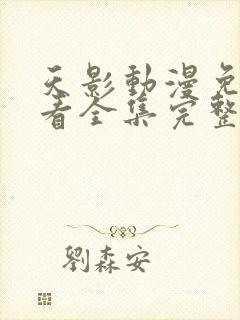 天影動漫免
看全集完整
劉森安